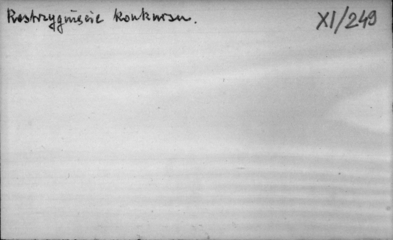 Rostrzygnięcie konkursu.
XI/249